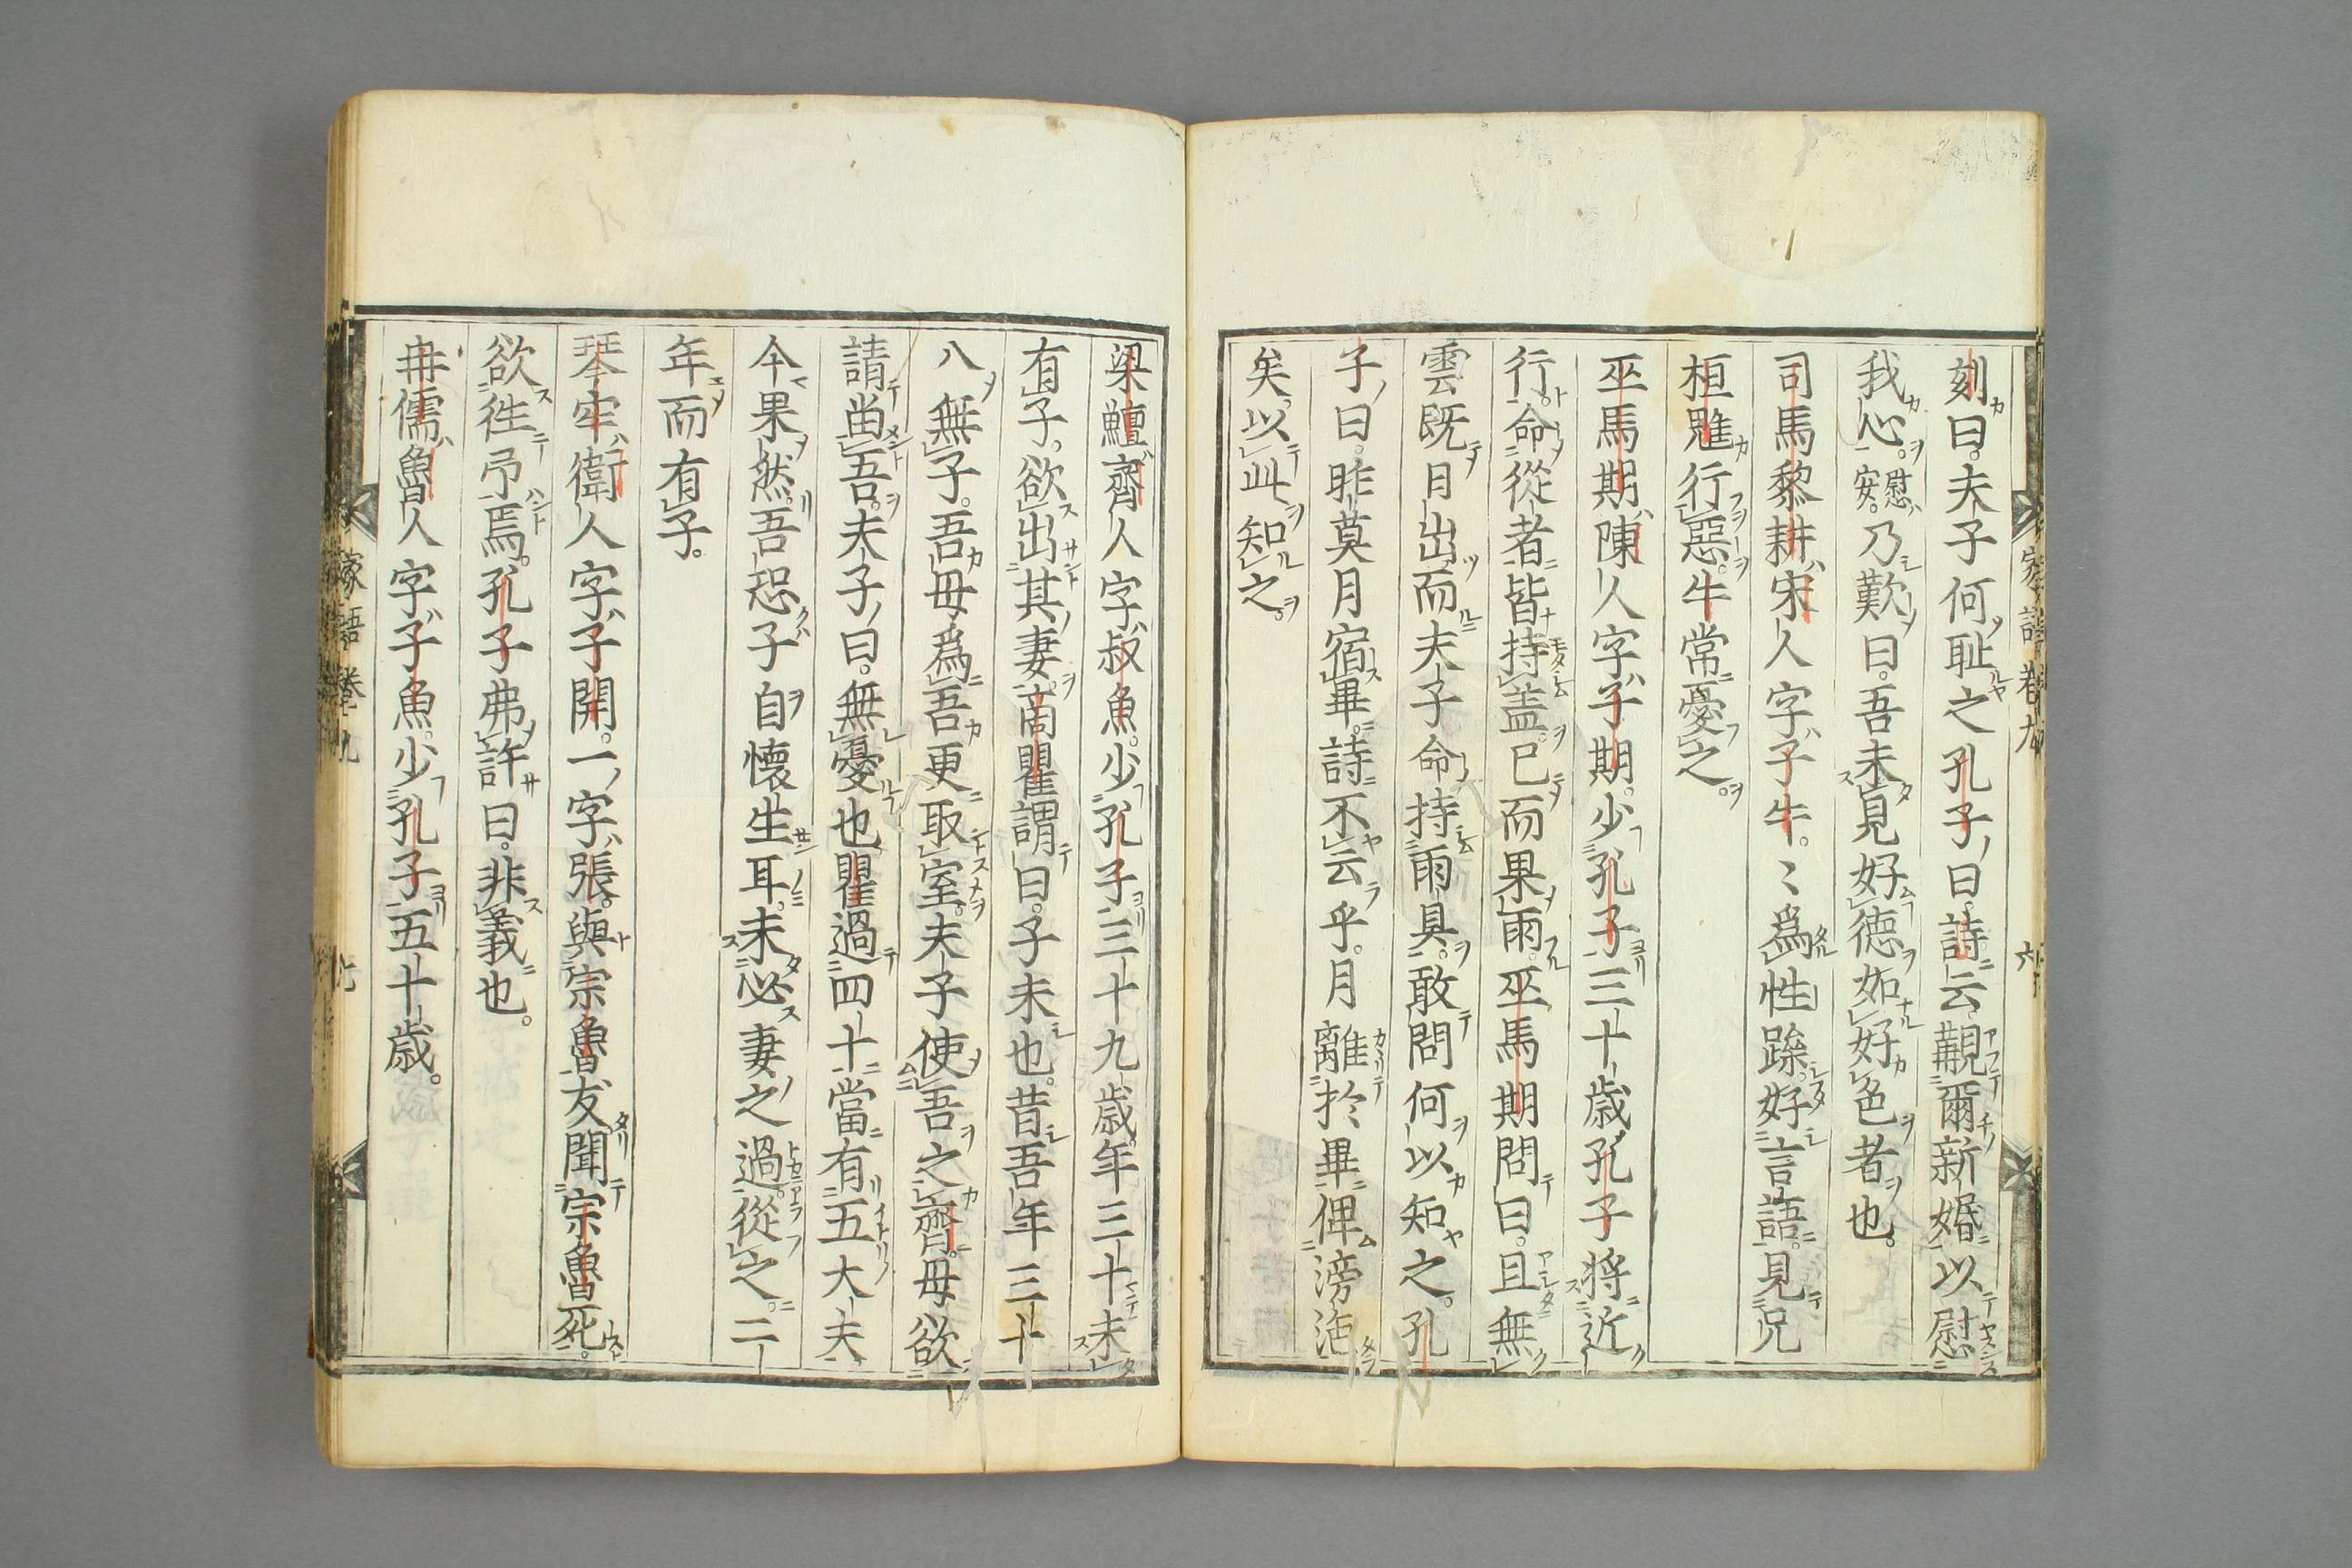 刻曰。夫子何耻之孔子曰。詩云。覯爾新婚以慰
我心。慰安。乃歎曰。吾未見好德如好色者也。
司馬黎耕宋人字子牛。〻爲性躁。好言語。見兄
桓魋行惡。牛常憂之。
巫馬期陳人字子期。少孔子三十歳孔子將近
行。命從者皆持蓋。已而果雨。巫馬期問曰。且無
雲既日出而夫子命持雨具。敢問何以知之。孔
子曰。昨莫月宿畢。詩不云乎。月離於畢俾滂沲
矣。以此知之。
梁鱣齊人字叔魚。少孔子三十九歳。年三十未
有子。欲出其妻。啇瞿謂曰。子未也。昔吾年三十
八無子。吾母爲吾更取室。夫子使吾之齊。母欲
請留吾。夫子曰。無憂也瞿過四十當有五大夫
今果然。吾恐子自懷生耳。未必妻之過。從之。二
年而有子。
琴牢衛人字子開。一字張。與宗魯友聞宗魯死。
欲徃弔焉。孔子弗許曰。非義也。
冉儒魯人字子魚。少孔子五十歳。
家語卷九
六
家語卷九
七